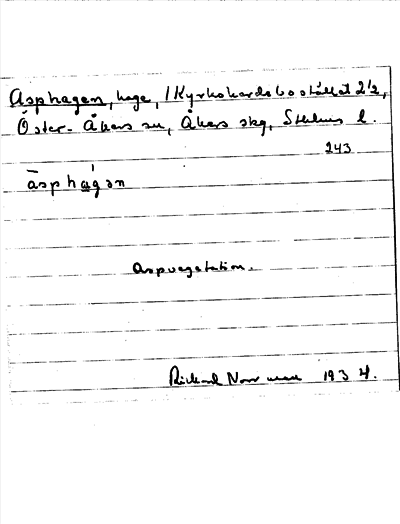 Asphagen, hage, /Kyrkoherdebostället 2 1/2,
Öster-Åkers sn, Åkers skg, Sthlms l.
243
āsphagən
Aspvegetation.
Rickard Norrman 1934.